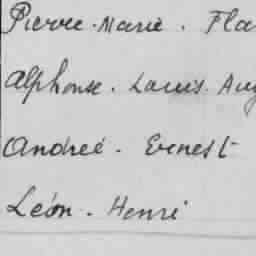 Pierre-Marie. Fla
Alphonse. Louis. Aug
André. Ernest
Léon. Henri